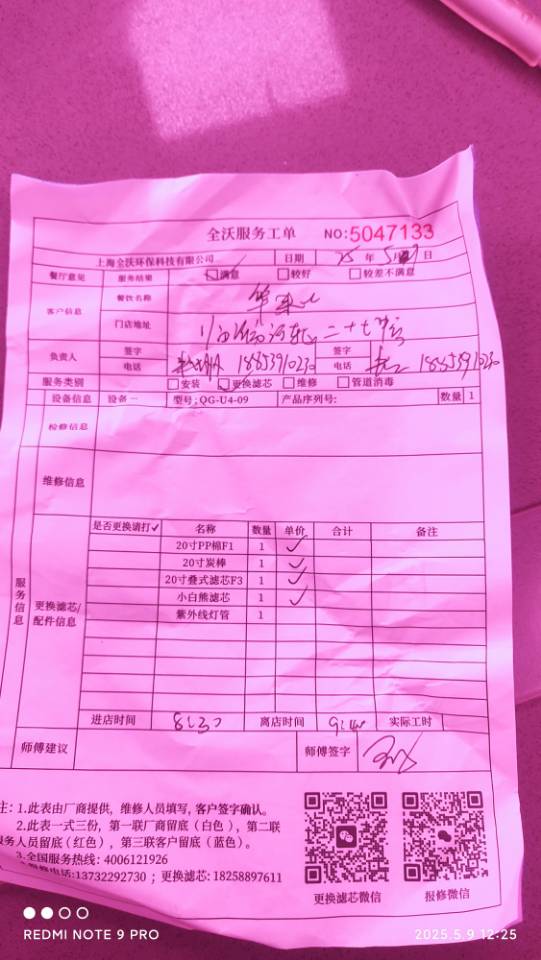 全沃服务工单 NO:5047133
上海全沃环保科技有限公司 日期 25 年 日
餐厅意见 服务结果 ☑满意 □较好 □较差不满意
客户信息 餐饮名称
门店地址 二十七
负责人 签字 签字
电话 18853910230 电话 18853910230
服务类别 □安装 ☑更换滤芯 □维修 □管道消毒
设备信息 设备一 型号:QG-U4-09 产品序列号: 数量 1
检修信息
维修信息
服务信息
更换滤芯/配件信息
是否更换请打✓ 名称 数量 单价 合计 备注
20寸PP棉F1 1 ✓
20寸炭棒 1 ✓
20寸叠式滤芯F3 1 ✓
小白熊滤芯 1 ✓
紫外线灯管 1
进店时间 8:30 离店时间 实际工时
师傅建议 师傅签字
注: 1.此表由厂商提供, 维修人员填写, 客户签字确认。
2.此表一式三份, 第一联厂商留底(白色), 第二联
服务人员留底(红色), 第三联客户留底(蓝色)。
3.全国服务热线: 4006121926
电话:13732292730 ; 更换滤芯: 18258897611
更换滤芯微信 报修微信
REDMI NOTE 9 PRO 2025.5.9 12:25